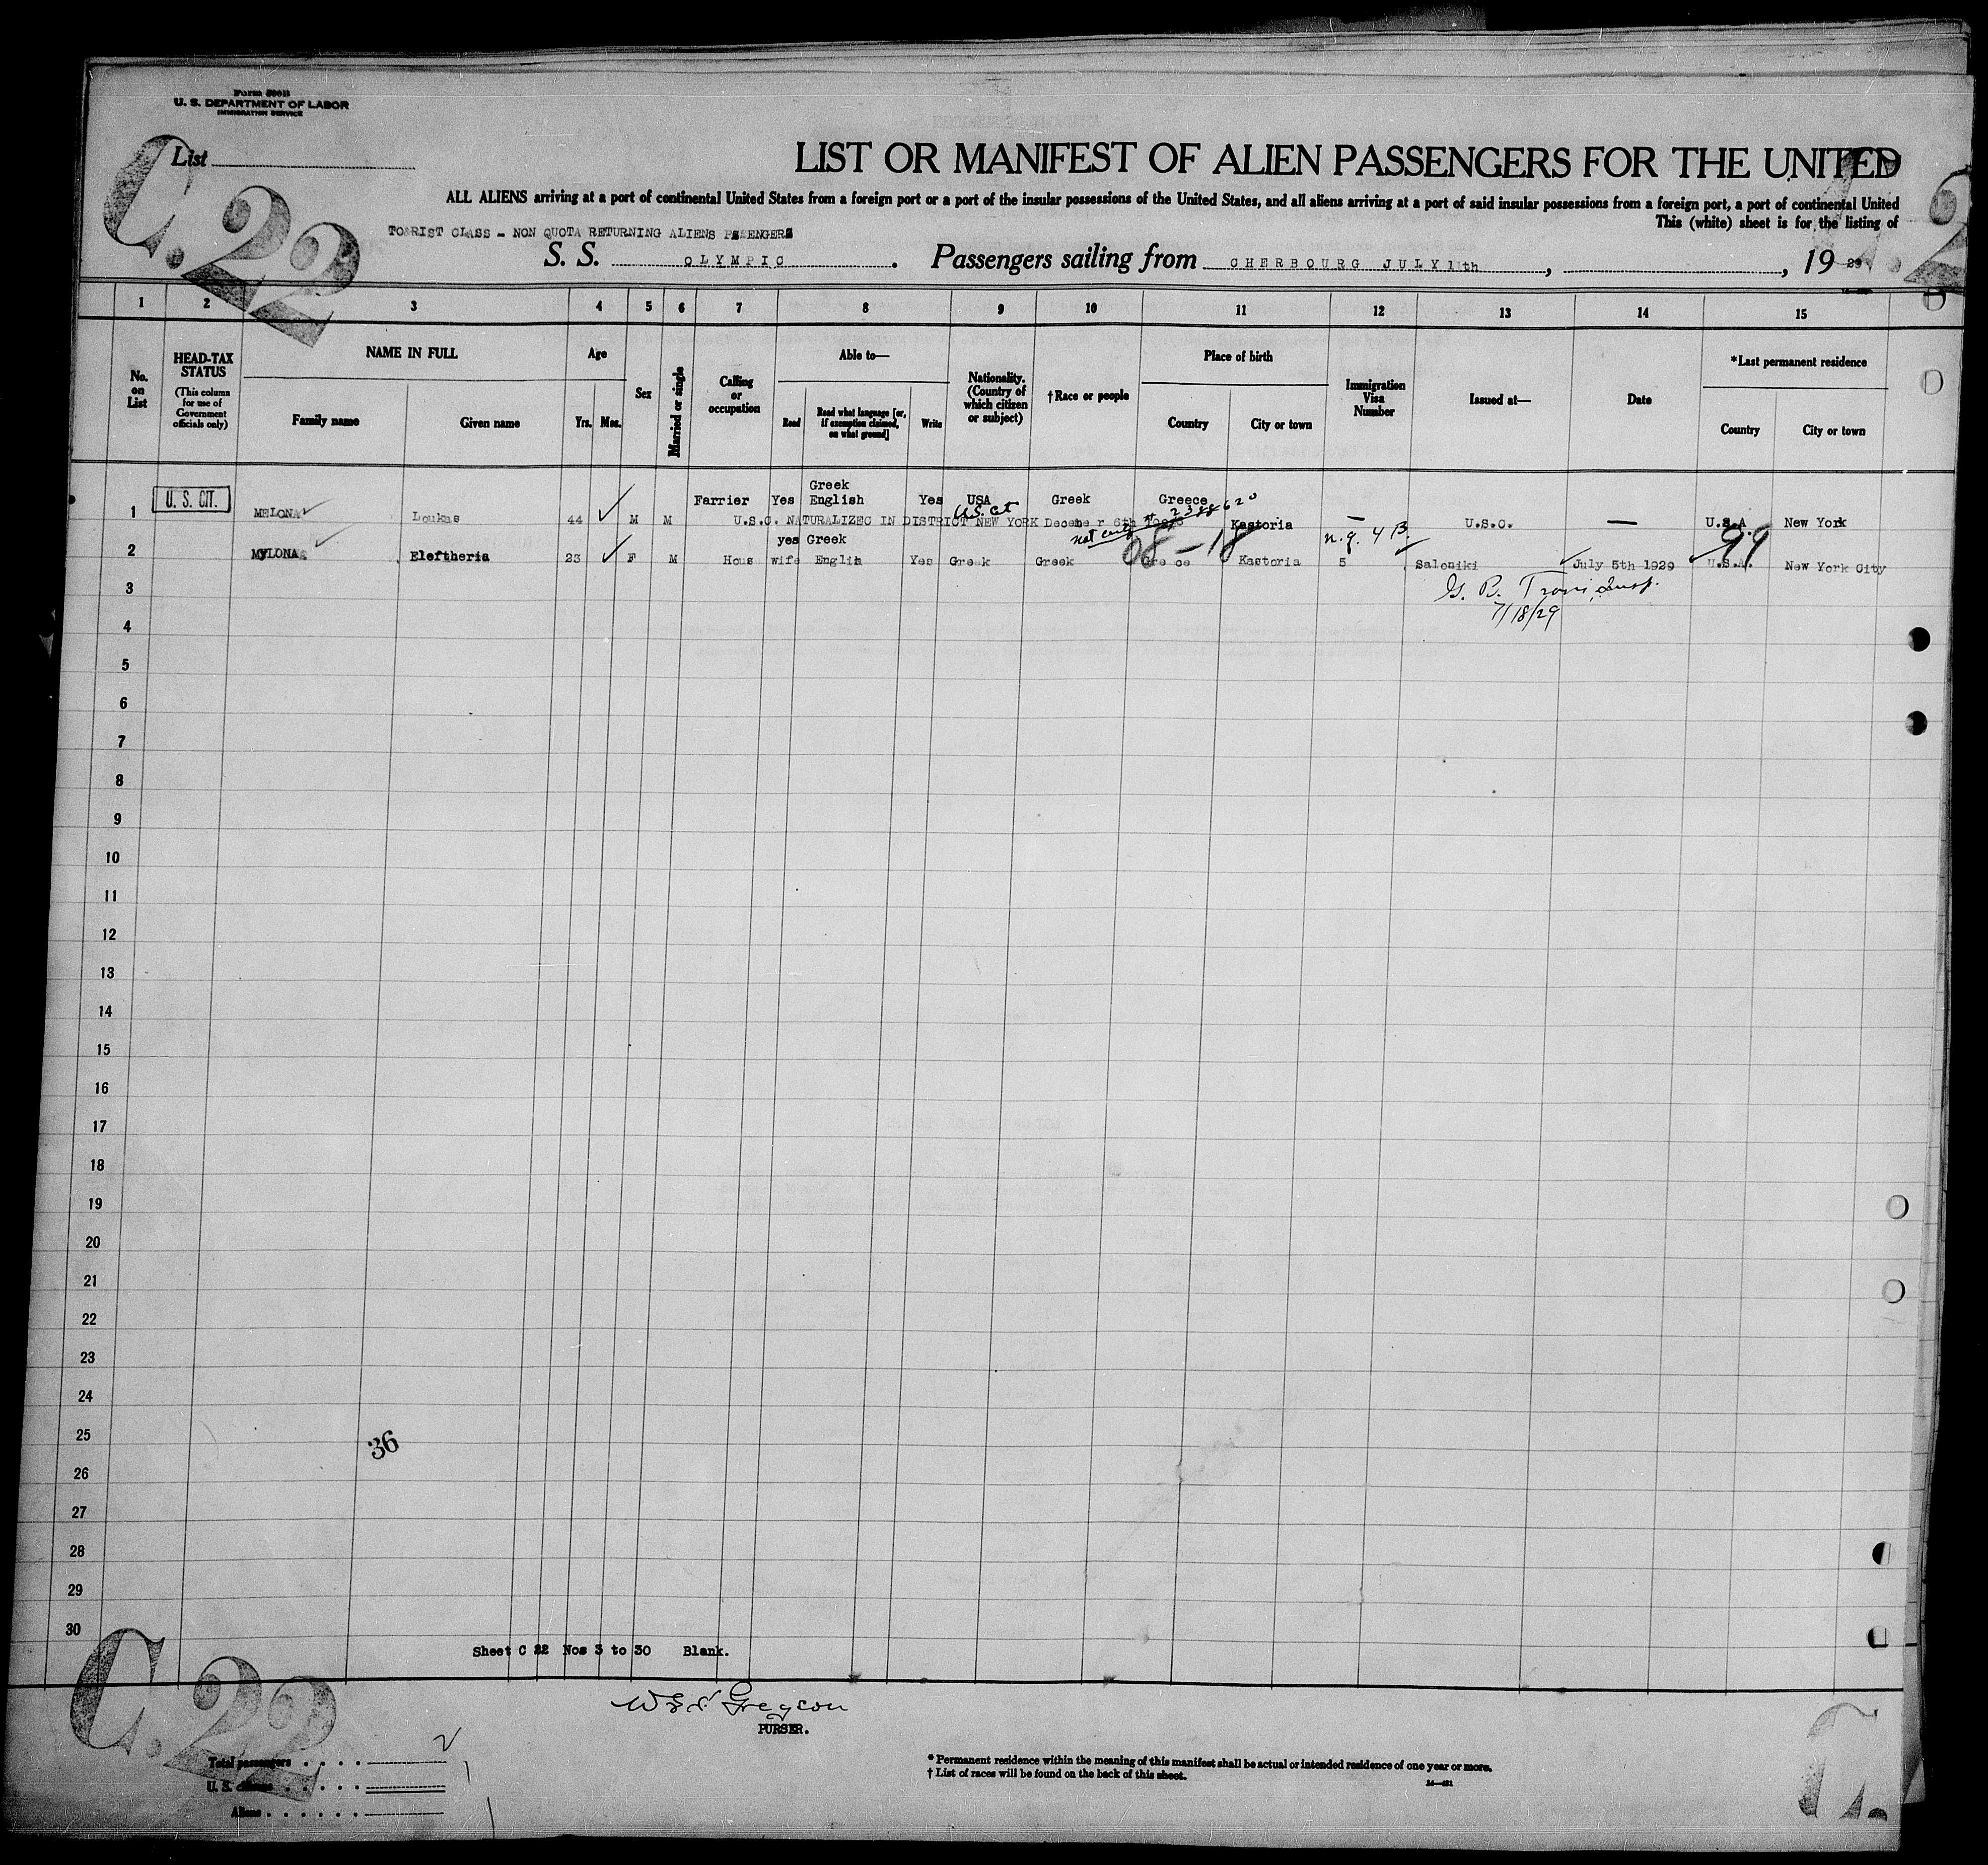 U. S. DEPARTMENT OF LABOR
IMMIGRATION SERVICE
C.22
List
LIST OR MANIFEST OF ALIEN PASSENGERS FOR THE UNITED
ALL ALIENS arriving at a port of continental United States from a foreign port or a port of the insular possessions of the United States, and all aliens arriving at a port of said insular possessions from a foreign port, a port of continental United
This (white) sheet is for the listing of
TOURIST CLASS - NON QUOTA RETURNING ALIENS PASSENGERS
S. S. OLYMPIC. Passengers sailing from CHERBOURG JULY 11th, , 19 29
1 2 3 4 5 6 7 8 9 10 11 12 13 14 15
No. on List
HEAD-TAX STATUS
(This column for use of Government officials only)
NAME IN FULL
Family name Given name
Age
Yrs. Mos.
Sex
Married or single
Calling or occupation
Able to—
Read
Read what language [or, if exemption claimed, on what ground]
Write
Nationality. (Country of which citizen or subject)
†Race or people
Place of birth
Country City or town
Immigration Visa Number
Issued at—
Date
*Last permanent residence
Country City or town
1 U. S. CIT. MELONA Loukas 44 M M Farrier Yes Greek English Yes USA Greek Greece Kastoria — U.S.C. — U.S.A. New York
U.S. Cit
# 2388620
U.S.C. NATURALIZED IN DISTRICT NEW YORK December 6th
2 MYLONAS Eleftheria 23 F M Houswife yes Greek English Yes Greek Greek Greece Kastoria 5 Saloniki July 5th 1929 U.S.A. New York City
n.q. 4 B.
08-18
99
G. B. Travis, Insp.
7/18/29
3
4
5
6
7
8
9
10
11
12
13
14
15
16
17
18
19
20
21
22
23
24
25
36
26
27
28
29
30
Sheet C 22 Nos 3 to 30 Blank.
C.22
Greyson
PURSER.
Total passengers 2
U. S. citizens 1
Aliens 1
* Permanent residence within the meaning of this manifest shall be actual or intended residence of one year or more.
† List of races will be found on the back of this sheet.